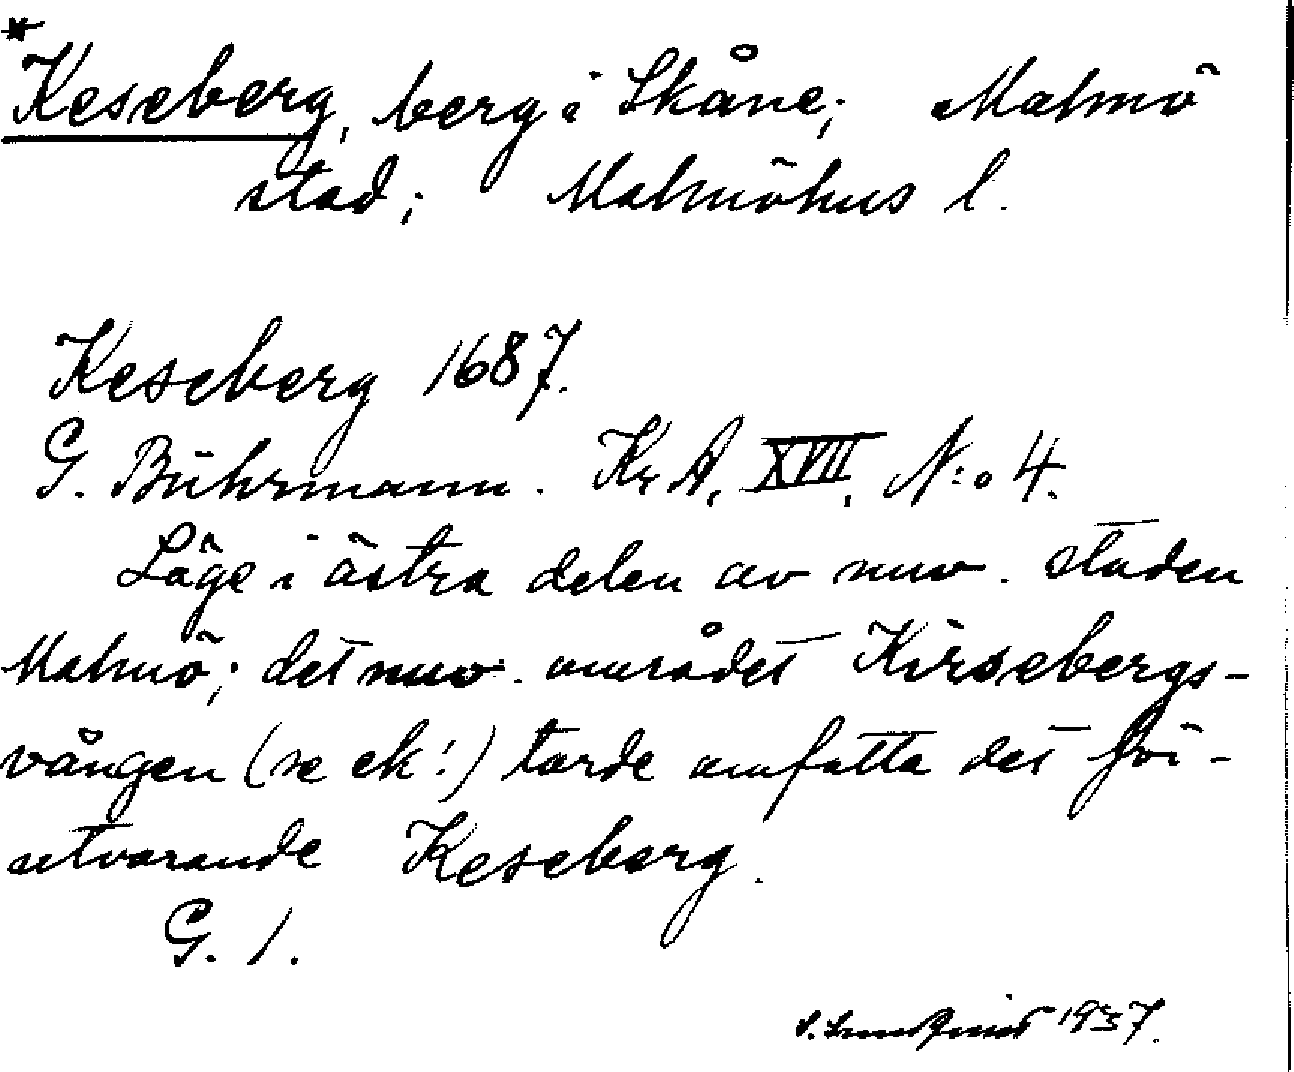 *
Keseberg, berg i Skåne; Malmö
stad; Malmöhus l.
Keseberg 1687.
G. Bührmann. Kr A, XVII, N:o 4.
Läge i östra delen av nuv. staden
Malmö; det nuv. området Kirsebergs-
vången (se ek!) torde omfatta det för-
utvarande Keseberg.
G. 1.
1937.